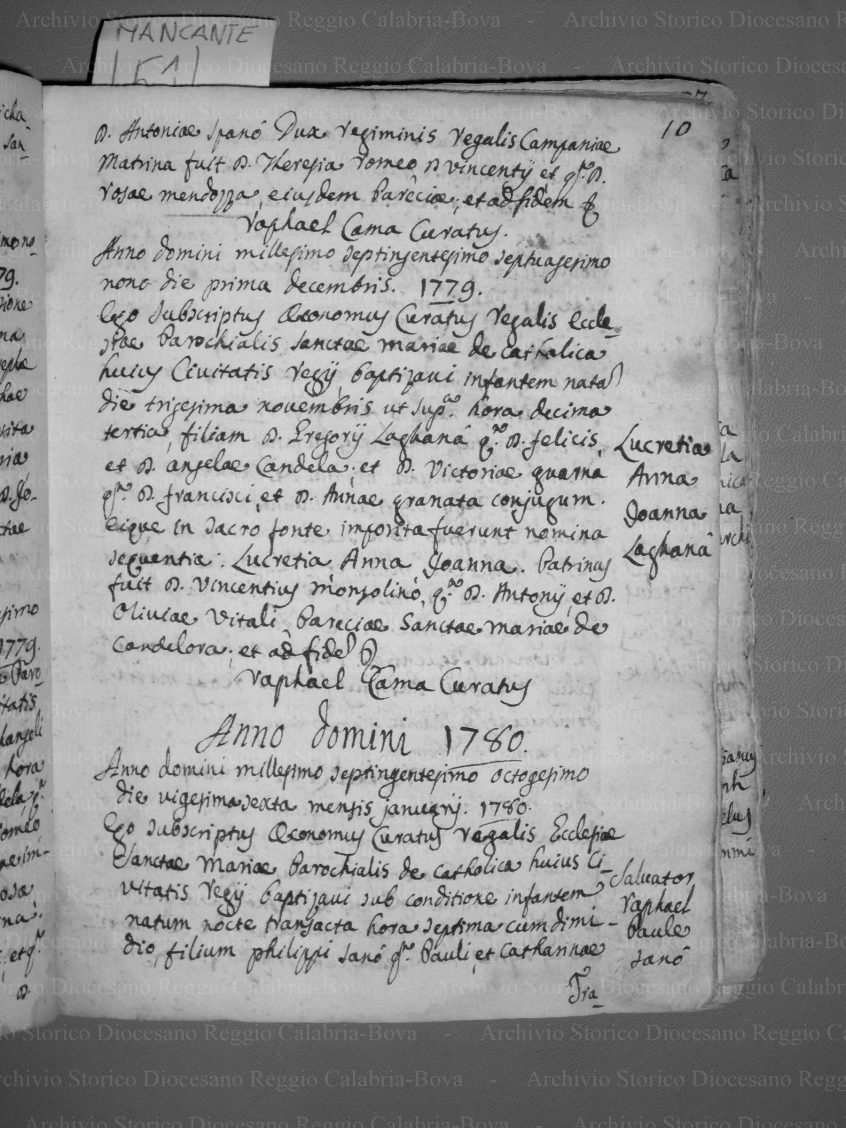 MANCANTE
51
10
D. Antoniae Spanó Dux regiminis Regalis Campaniae
Matrina fuit D. Theresia Romeo D Vincentij et q.m D.
Rosae mendozza, eiusdem Paręciae; et ad fidem
Raphael Cama Curatus.
Anno domini millesimo septingentesimo septuagesimo
nono die prima decembris. 1779.
Ego Subscriptus Œconomus Curatus Regalis Eccle_
siae Parochialis Sanctae Mariae de Catholica
huius Civitatis Regij baptizavi infantem natã
die trigesima novembris ut sup.a hora decima
tertia, filiam D. Gregorij Laghanâ q.m D. felicis,
et D. angelae Candela; et D. Victoriae guarna
q.m D. francisci, et D. Annae granata conjugum.
eique in sacro fonte imposita fuerunt nomina
sequentia: Lucretia Anna Joanna. Patrinus
fuit D. Vincentius monsolinó, q.m D. Antonij, et D.
Oliviae Vitali, Pareciae Sanctae Mariae de
Candelora; et ad fidẽ
Raphael Cama Curatus
Lucretia
Anna
Joanna
Laghanâ
Anno Domini 1780.
Anno domini millesimo septingentesimo octogesimo
die vigesima sexta mensis januarij. 1780.
Ego Subscriptus Œconomus Curatus Regalis Ecclesiae
Sanctae Mariae Parochialis de Catholica huius Ci_
vitatis Regij baptizavi sub conditione infantem
natum nocte transacta hora septima cum dimi-
dio, filium philippi Sanó q.m Pauli, et Catharinae
Salvator
Raphael
Paule
Sanó
Tra_
Archivio Storico Diocesano Reggio Calabria-Bova